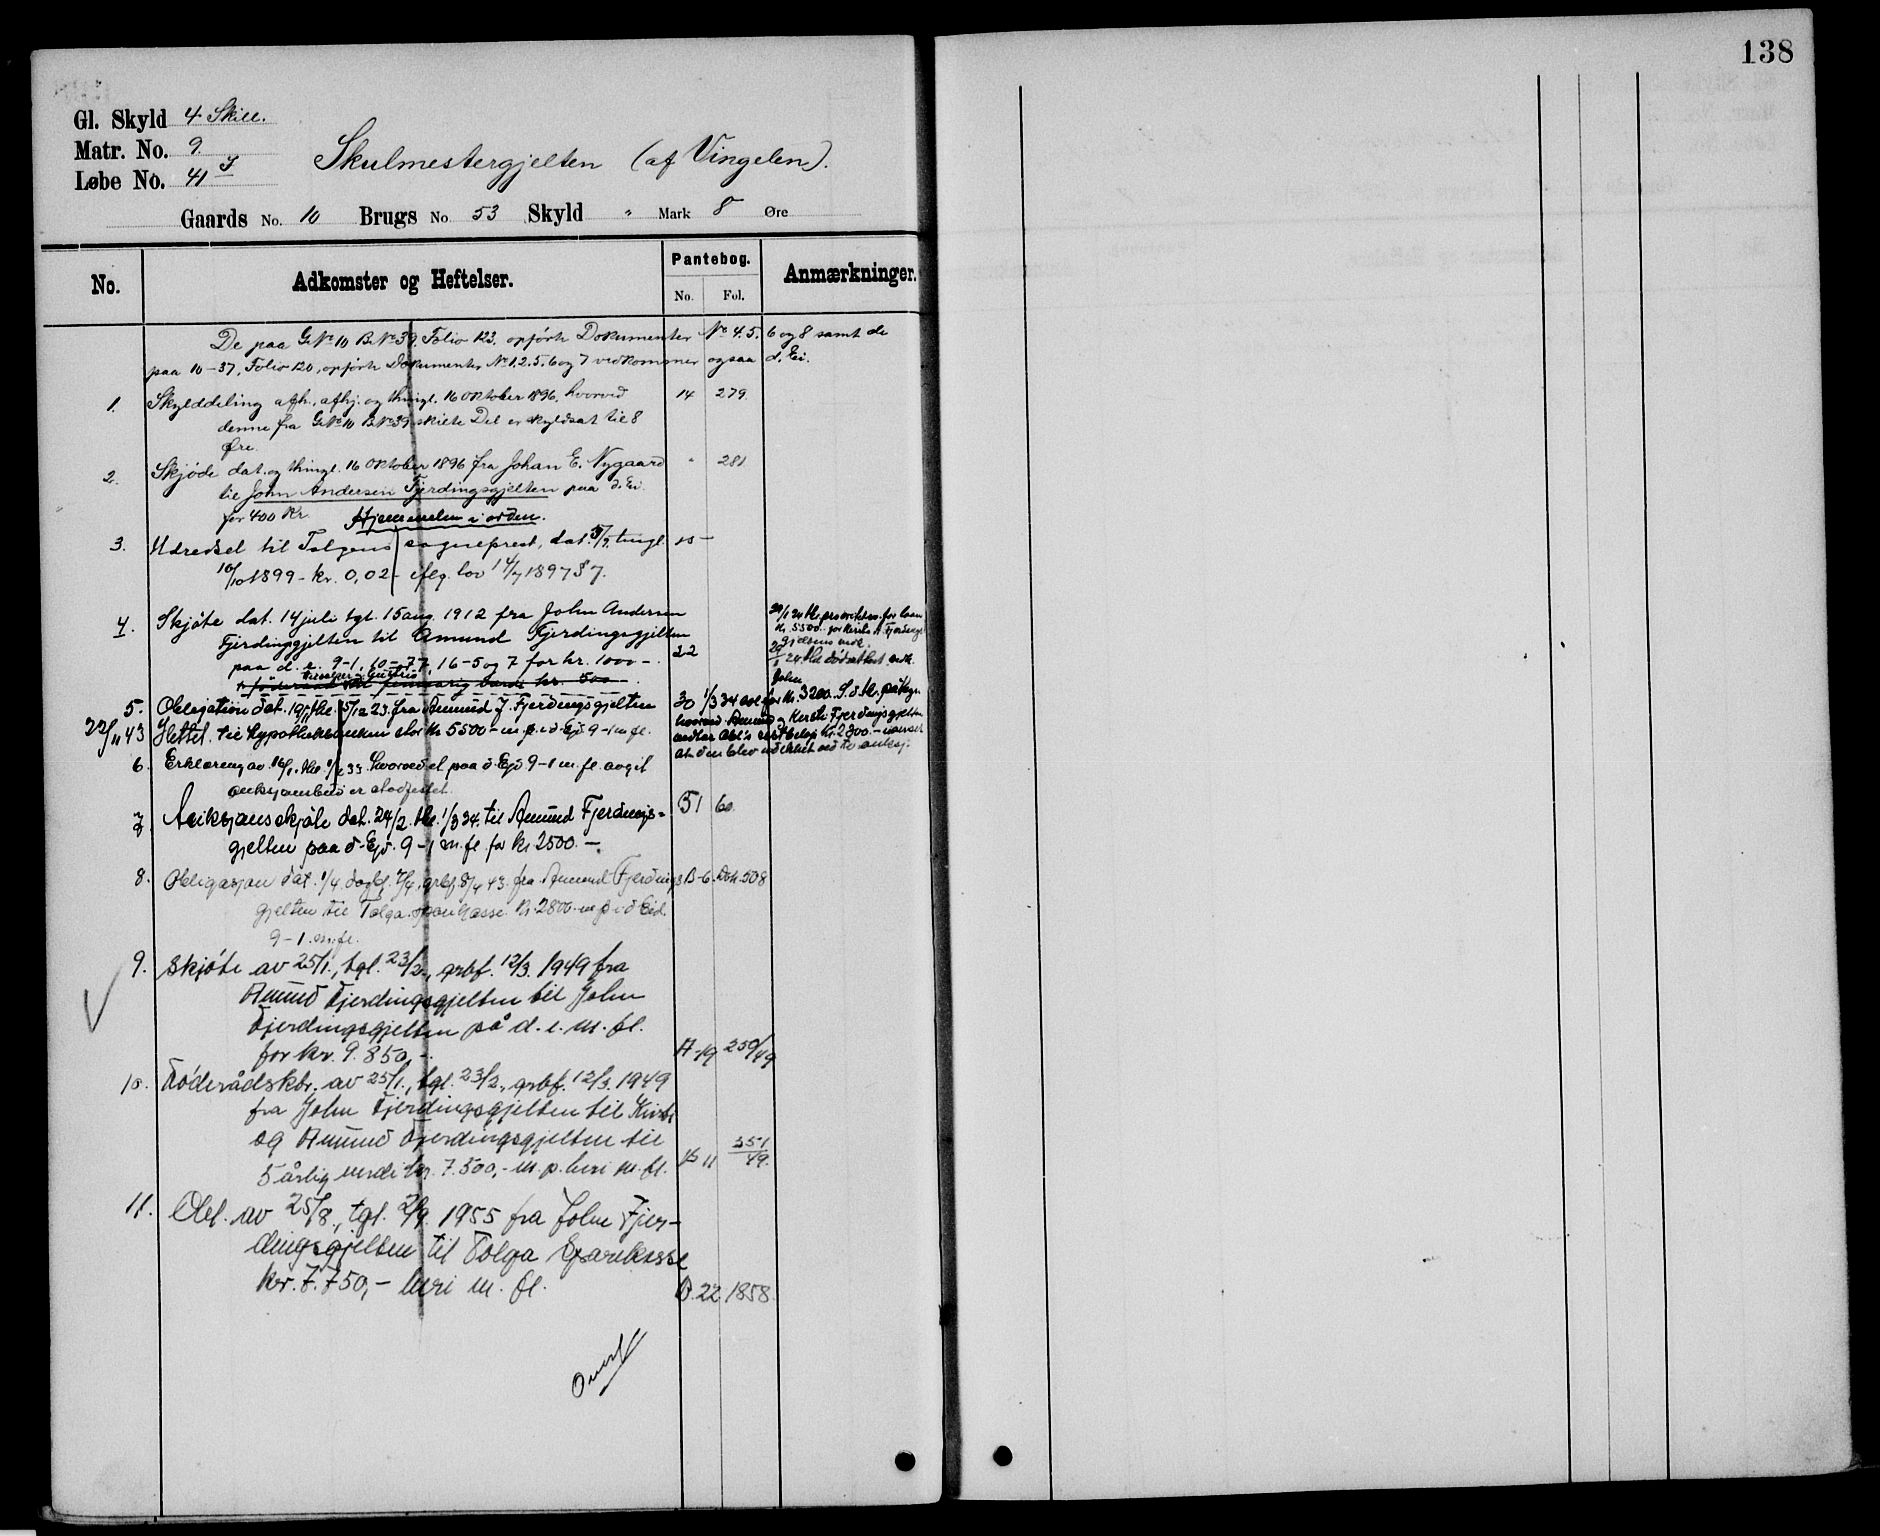 138
Gl. Skyld 4 Skill.
Matr. No. 9.
Løbe No. 41
Skulmestergjelten (af Vingelen).
Gaards No. 10 Brugs No. 53 Skyld " Mark 8 Øre
No. Adkomster og Heftelser. Pantebog. Anmærkninger.
No. Fol.
De paa G.No 10 B.No 39, Folio 123, opførte Dokumenter No 4. 5. 6 og 8 samt de
paa 10-37, Folio 120, opførte Dokumenter No 1. 2. 5. 6 og 7 vedkommer ogsaa d. Ei.
1. Skylddeling afh., afhj. og thingl. 16 Oktober 1896, hvorved 14 279.
denne fra G.No 10 B.No 39 skilte Del er skyldsat til 8
Øre.
2. Skjøde dat. og thingl. 16 Oktober 1896 fra Johan E. Nygaard " 281
til John Andersen Fjerdingsgjelten paa d. Ei.
for 400 Kr. Hjemmelen i orden.
3. Udredsel til Tolgens sogneprest, dat. tingl. 15 -
10/10 1899 - kr. 0,02 - iflg. lov 14/7 1897 § 7.
4. Skjøte dat. 14 juli tgl. 15 aug. 1912 fra John Andersen
Fjerdingsgjelten til Amund Fjerdingsgjelten 22
paa d. e. 9-1, 10-77, 16-5 og 7 for kr. 1000 -.
+ føderaad femaarig værdi kr. 500
for laan
kr. 5500.- A. Fjerdings-
gjeltens
John
5. Obligation dat. 19/11 thl. 5/12 23. fra Amund J. Fjerdingsgjelten 30 1/3 34 for kr. 3200.
22/11 43 Slettet. til Hypothekbanken stor kr 5500 - m. p. i d. Ejd 9-1 m. fl.
hvorved Amund og Kirsti Fjerdingsgjelten
kr. 2800.-
at den blev
6. Erklæring av 16/1. thl. 33. hvorved et paa d. Ejd 9-1 m. fl. avgit
auksjonsbud er
7. Auksjonsskjøte dat. 24/2. thl. 1/3 34. til Amund Fjerdings- 51 60
gjelten paa d. Ejd. 9-1 m. fl. for kr 2500. -.
8. Obligasjon dat. 1/4 dagbf. 7/4, grbf 8/4 43. fra Amund Fjerdings B-6. Dok. 508
gjelten til Tolga Sparekasse. kr 2800.- m p i d Eid.
9-1. m. fl.
9. Skjøte av 25/1., tgl. 23/2., grbf. 12/3. 1949 fra
Amund Fjerdingsgjelten til John
Fjerdingsgjelten på d. e. m. fl.
for kr. 9.850,-. A-19 250/49
10. Føderådskbr. av 25/1., tgl. 23/2., grbf. 12/3. 1949
fra John Fjerdingsgjelten til Kirsti
og Amund Fjerdingsgjelten til
5 årlig verdi kr. 7.500,- m. p. heri m. fl. B 11 351/49.
11. Obl. av 25/8., tgl. 2/9. 1955 fra John Fjer-
dingsgjelten til Tolga Sparekasse
kr. 7.750,- heri m. fl. B. 22. 1858.
Overf.